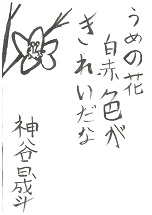 うめの花
白赤色が
きれいだな
神谷晟斗